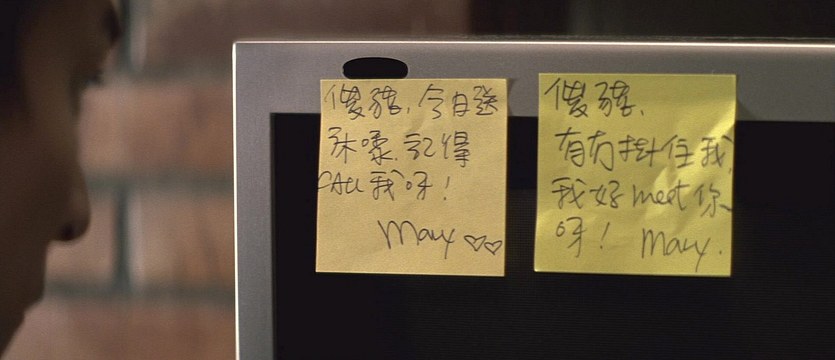 傻豬, 今日發
記得
CALL 我呀!
Mary
傻豬,
有冇掛住我,
我好 meet 你
呀! Mary.